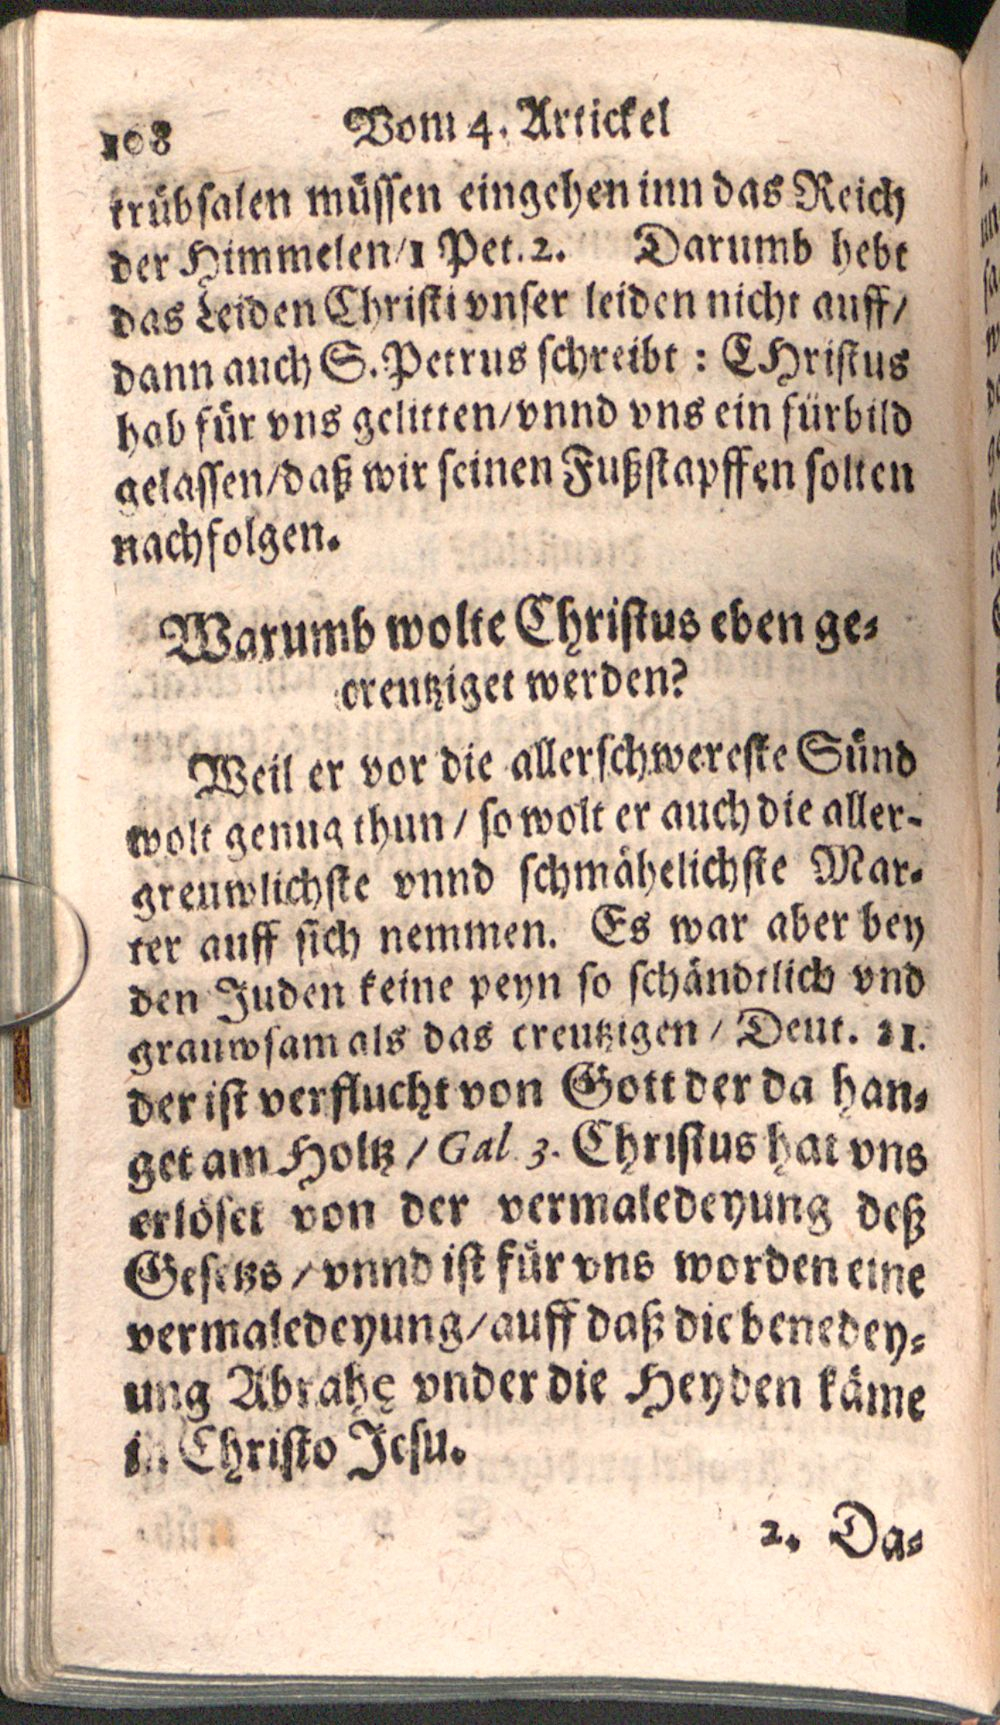 108 Vom 4. Artickel
trübsalen müssen eingehen inn das Reich
der Himmelen/1 Pet. 2. Darumb hebt
das Leiden Christi vnser leiden nicht auff/
dann auch S. Petrus schreibt : CHristus
hab für vns gelitten/vnnd vns ein fürbild
gelassen/daß wir seinen Fußstapffen solten
nachfolgen.
Warumb wolte Christus eben ge-
creutziget werden?
Weil er vor die allerschwereste Sünd
wolt genug thun / so wolt er auch die aller-
greuwlichste vnnd schmähelichste Mar-
ter auff sich nemmen. Es war aber bey
den Juden keine peyn so schändtlich vnd
grauwsam als das creutzigen / Deut. 21.
der ist verflucht von Gott der da han-
get am Holtz / Gal 3. Christus hat vns
erlöset von der vermaledeyung deß
Gesetzs / vnnd ist für vns worden eine
vermaledeyung/auff daß die benedey-
ung Abrahę vnder die Heyden käme
in Christo Jesu.
2. Da-